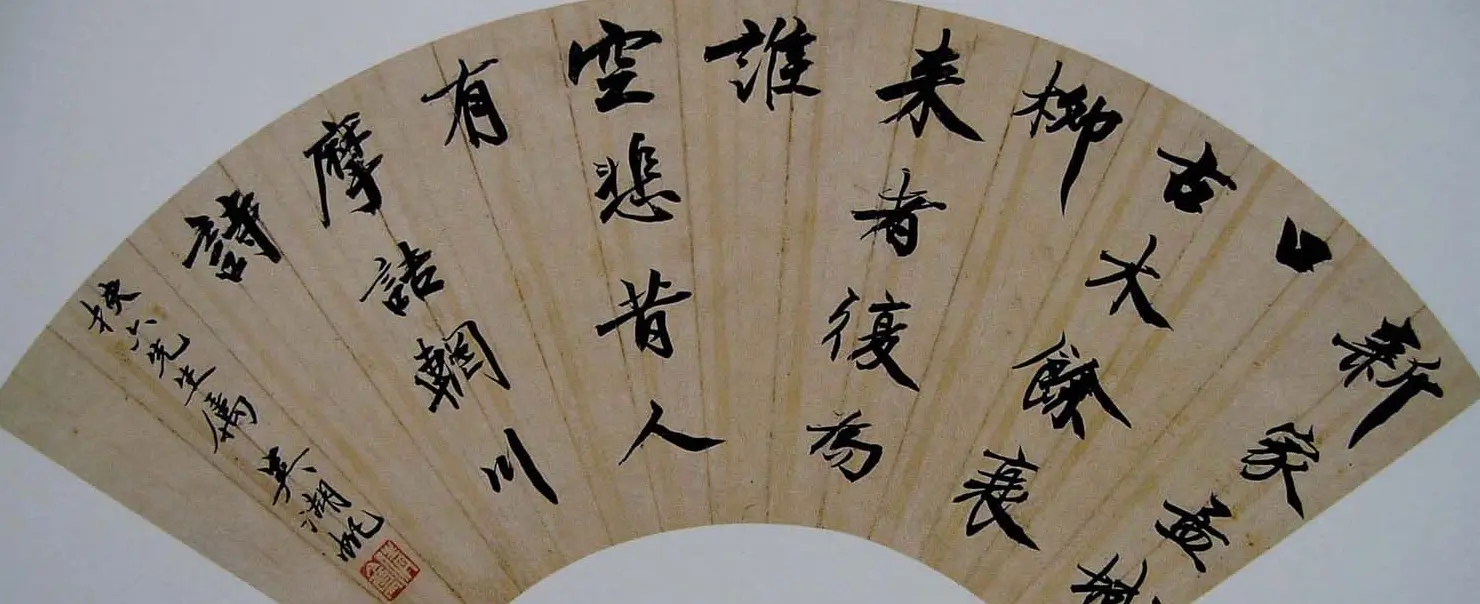 新家孟城
口
古木餘衰
柳
来者復為
誰
空悲昔人
有
摩詰輞川
詩
先生属 吳湖帆